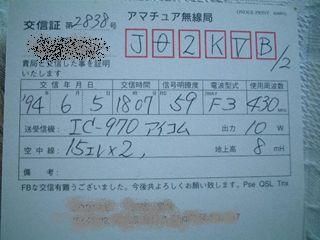 交信証 第2838号 アマチュア無線局
J02KTB/2
貴局と交信した事を証明
いたします
交信年月日 交信時間 信号明瞭度 電波型式 使用周波数
'94 6 5 1807 59 F3 430
送受信機 IC-970 アイコム 出力 10 W
空中線 15エレ×2, 地上高 8 mH
FBな交信有難うございました。今後共よろしくお願い致します。 Pse QSL Tnx